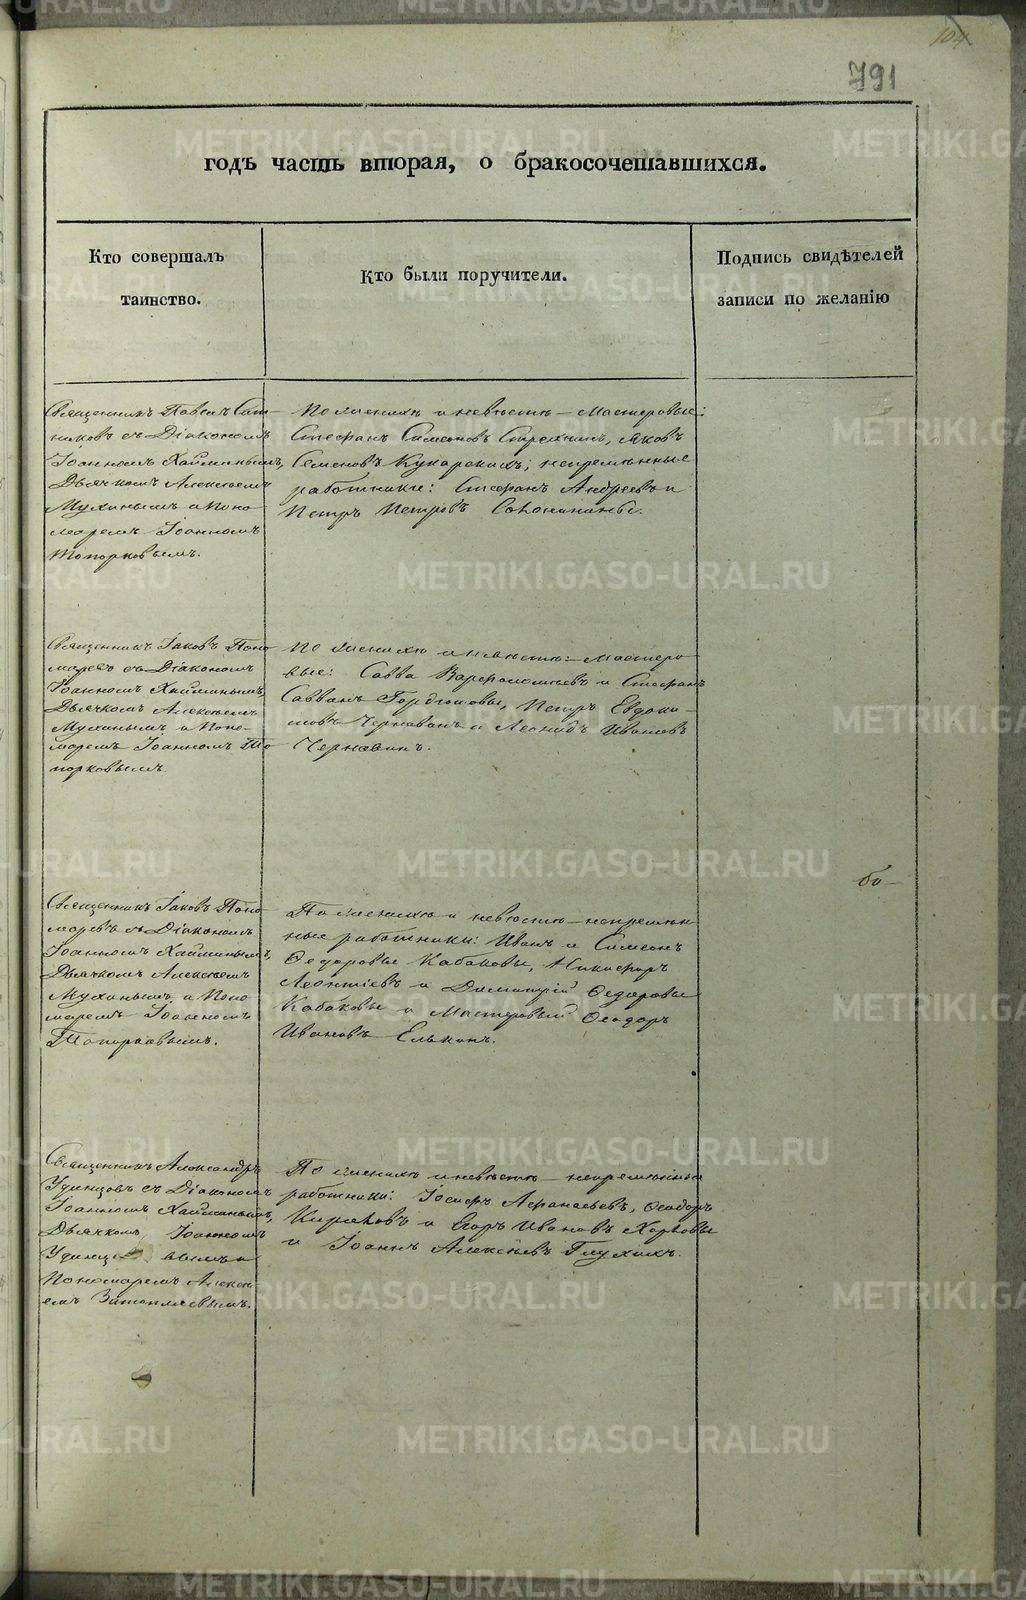 104
791
годъ часть вторая, о бракосочетавшихся.
Кто совершалъ
таинство.
Кто были поручители.
Подпись свидѣтелей
записи по желанію
Священникъ Павелъ
съ Діакономъ
Іоанномъ Хайминымъ,
Дьячкомъ Алексѣемъ
Мухинымъ и Поно-
маремъ Іоанномъ
Топорковымъ.
По женихѣ и невѣстѣ – мастеровые:
Стефанъ Симеоновъ Яковъ
Семеновъ непремѣнные
работники: Стефанъ Андреевъ и
Петръ Петровъ
Священникъ Іаковъ Поно
маревъ съ Діакономъ
Іоанномъ Хайминымъ,
Дьячкомъ Алексѣемъ
Мухинымъ и Поно-
маремъ Іоанномъ То
порковымъ
По женихѣ и невѣстѣ: мастеро
вые: Савва Варфоломѣевъ и Стефанъ
Саввинъ Петръ Евдоки-
мовъ Чернавинъ и Леонидъ Ивановъ
Чернавинъ.
бо-
Священникъ Іаковъ Поно
маревъ съ Діакономъ
Іоанномъ Хайминымъ,
Дьячкомъ Алексѣемъ
Мухинымъ и Поно
маремъ Іоанномъ
Топорковымъ.
По женихѣ и невѣстѣ – непремѣн
ные работники: Иванъ и Симеонъ
Ѳедоровы Кабаковы, Никифоръ
Леонтіевъ и Димитрій Ѳедоровы
Кабаковы и Мастеровый Ѳеодоръ
Ивановъ Елькинъ.
Священникъ Александръ
Удинцовъ съ Діакономъ
Іоанномъ Хайминымъ,
Дьячкомъ Іоанномъ
Удинцовымъ и
Пономаремъ Алексѣ-
емъ
По женихѣ и невѣстѣ непремѣнные
работники: Іосифъ Афанасьевъ, Ѳеодоръ
и Егоръ Ивановъ
и Іоаннъ Алексѣевъ Глухихъ.
METRIKI.GASO-URAL.RU